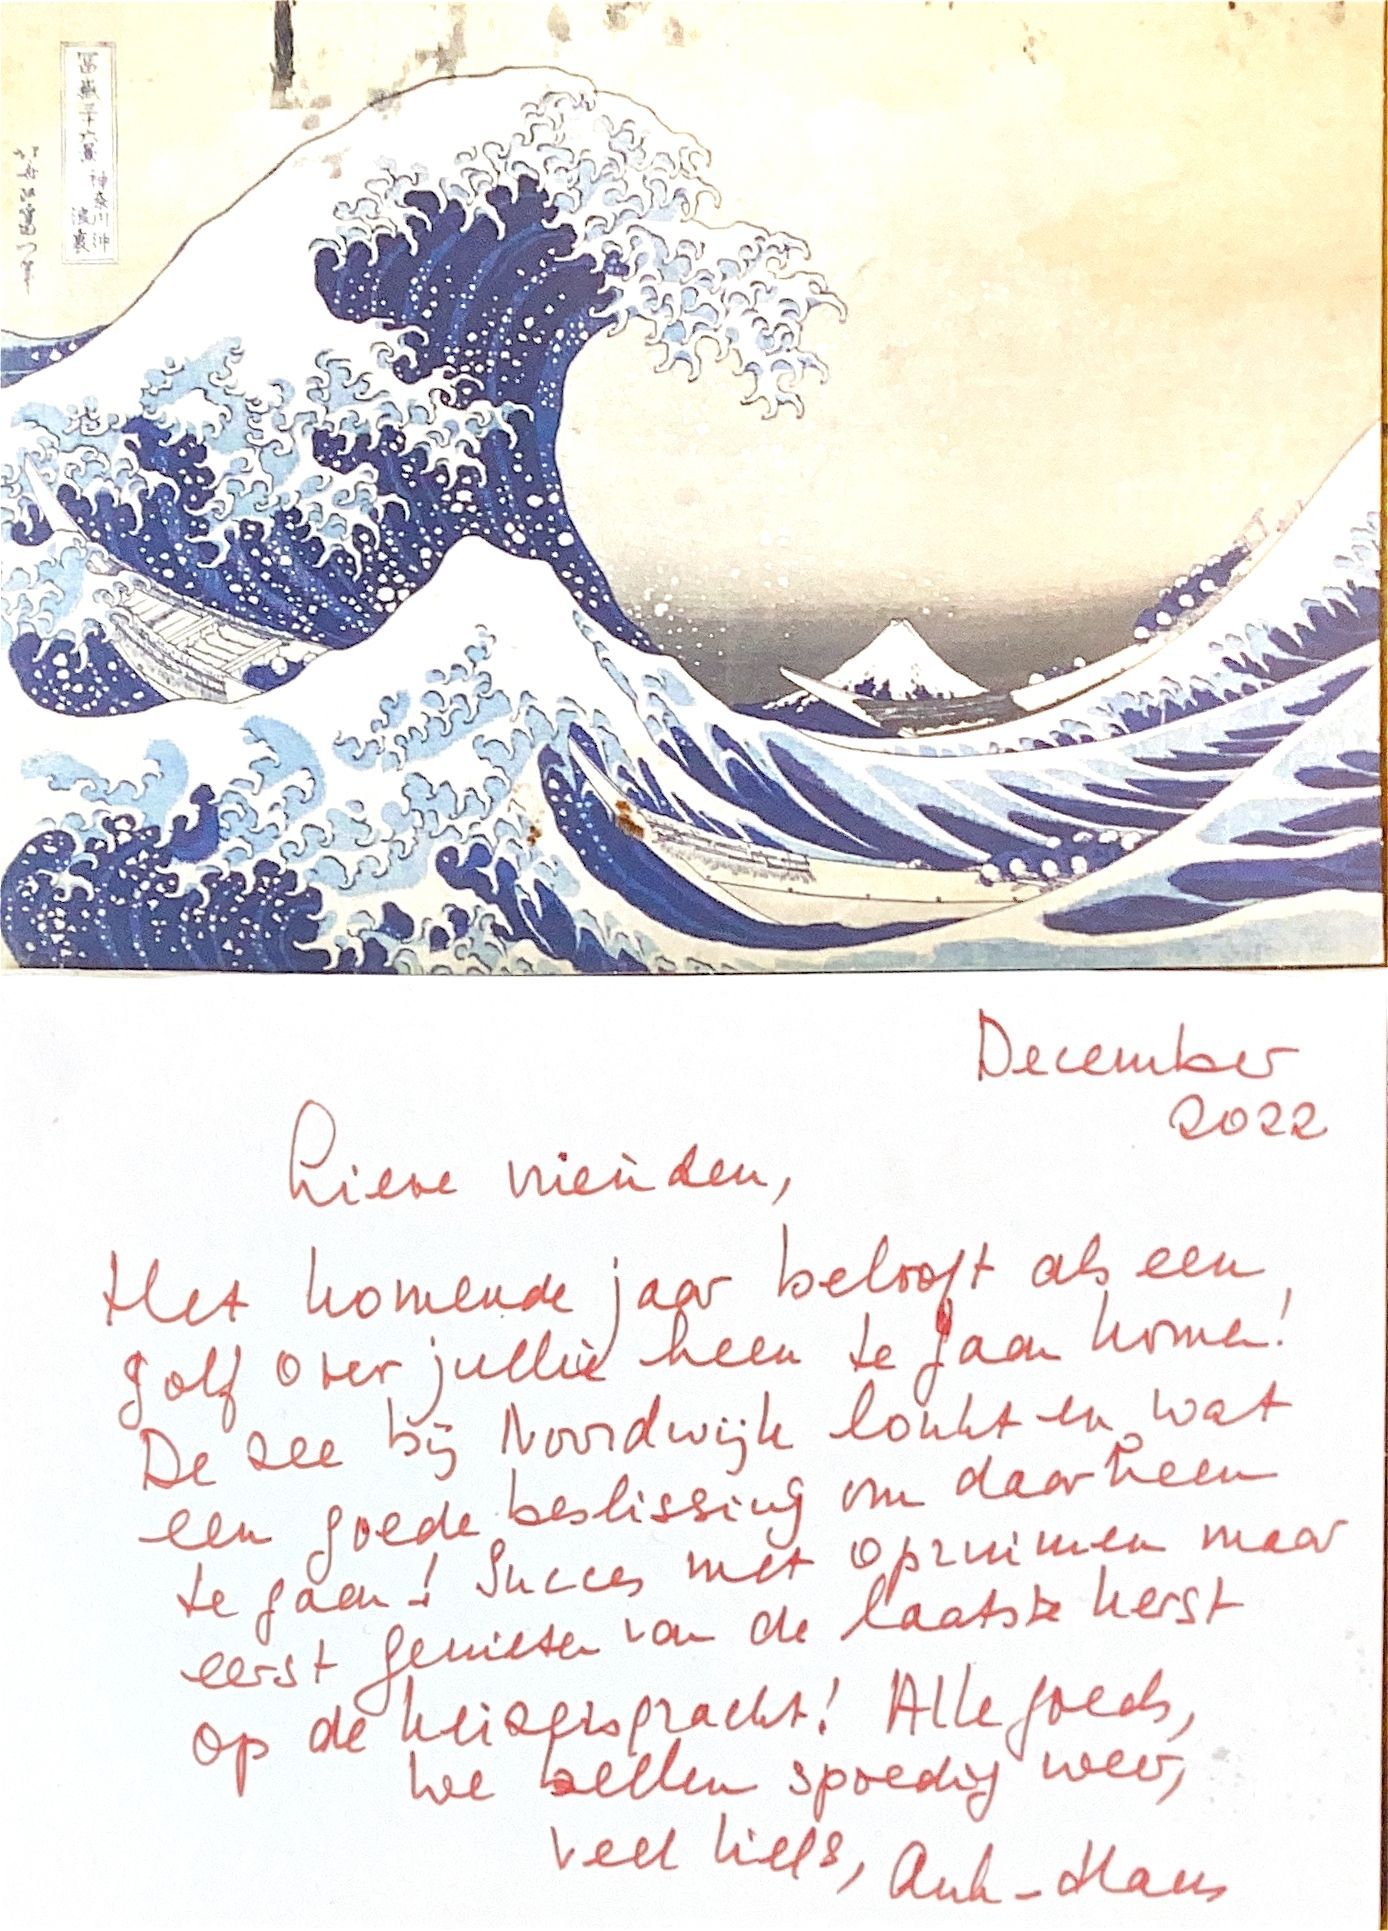 冨嶽三十六景 神奈川沖
浪裏
北斎改爲一筆
December
2022
Lieve vrienden,
Het komende jaar belooft als een
golf over jullie heen te gaan komen!
De zee bij Noordwijk lonkt en wat
een goede beslissing om daarheen
te gaan! Succes met opruimen maar
eerst genieten van de laatste kerst
op de keizersgracht! Alle goeds,
we bellen spoedig weer,
veel liefs, Ank-Hans